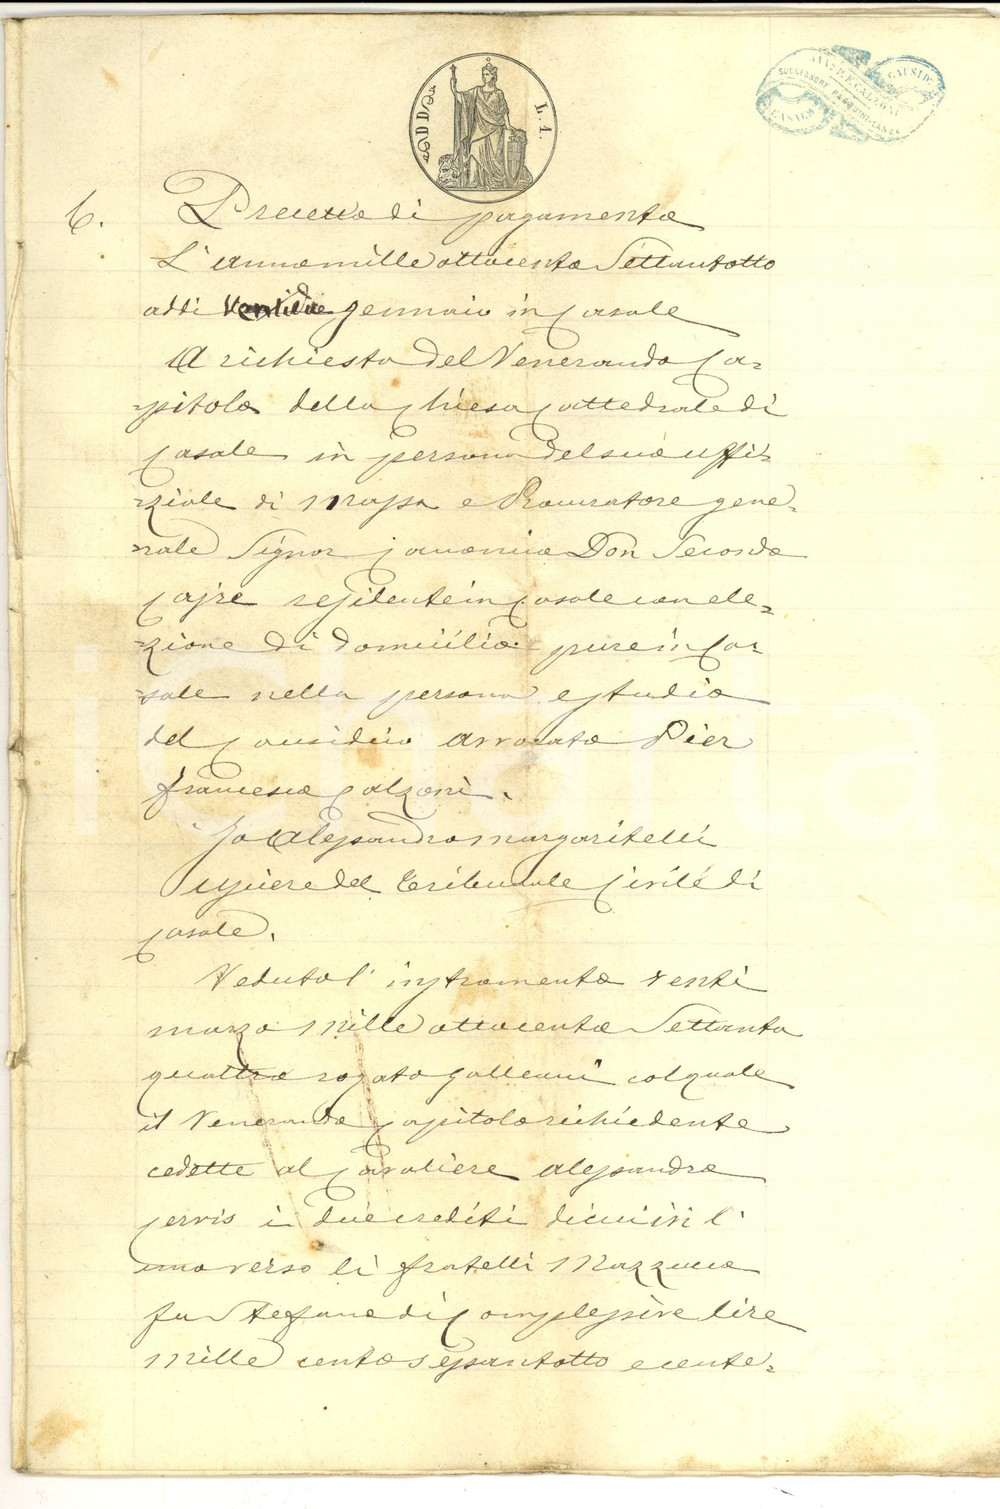 L. 1.
AVV. P. F. CALZONI
CAUSID.
SUCCESSORE PASQUINI-LANZA
CASALE
6. Precetto di pagamento
L'anno mille ottocento Settantotto
addi Ventidue gennaio in Casale
A richiesta del Venerando Ca=
=pitolo della Chiesa Cattedrale di
Casale in persona del suo uffi=
=ziale di Massa e Procuratore gene=
=rale Signor Canonico Don Secondo
Cajre residente in Casale con ele=
=zione di domicilio pure in Ca=
=sale nella persona e studio
del Causidico avvocato Pier
francesco Calzoni.
Io Alessandro Margaritelli
usciere del Tribunale Civile di
Casale.
Veduto l'instromento venti
marzo mille ottocento Settanta
quattro rogato Galleani col quale
il Venerando Capitolo richiedente
cedette al Cavaliere Alessandro
Cervis i due crediti di cui in l'
uno verso li fratelli Mazzucco
fu Stefano di Complessive lire
mille cento sessantotto e cente=